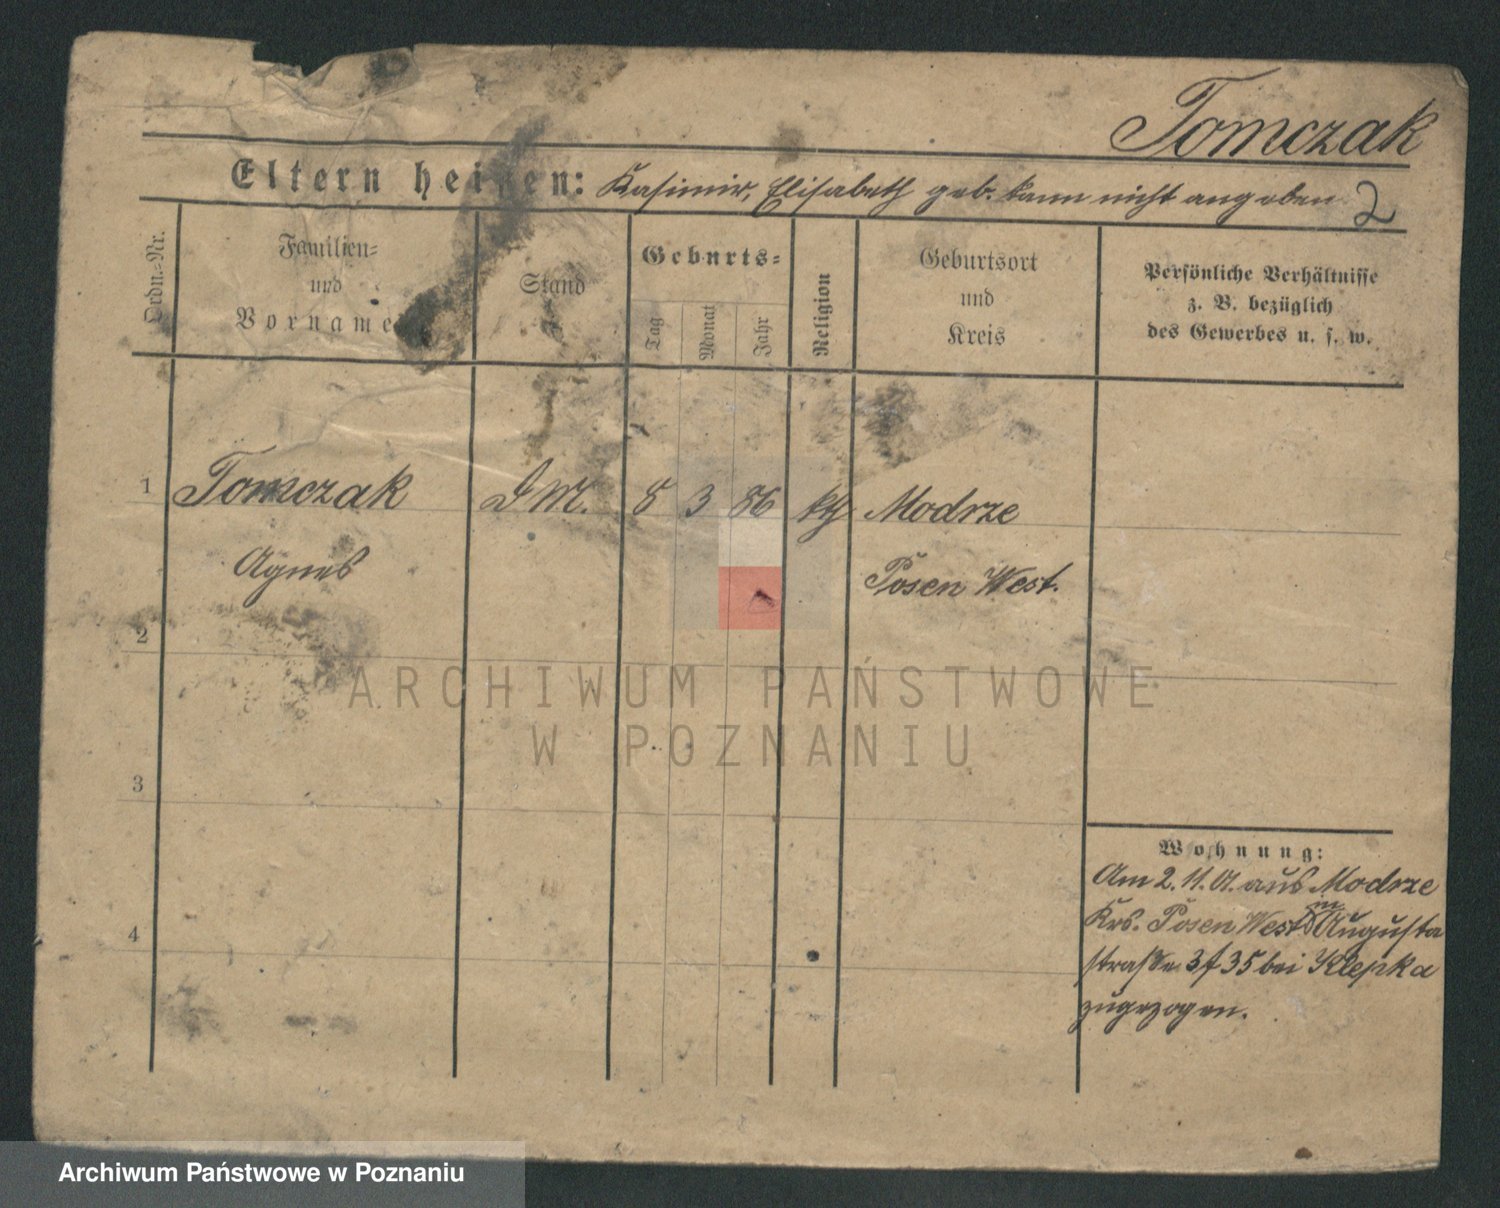 Tomczak
Eltern heißen: Kasimir, Elisabeth geb. kann nicht angeben 2
Ordn.-Nr.
Familien-
und
Vorname
Stand
Geburts-
Tag
Monat
Jahr
Religion
Geburtsort
und
Kreis
Persönliche Verhältnisse
z. B. bezüglich
des Gewerbes u. s. w.
1 Tomczak D M. 8 3 86 kth Modrze
Agnes Posen West.
2
ARCHIWUM PAŃSTWOWE
W POZNANIU
3
Wohnung:
Am 2. 11. 01. aus Modrze
Krs. Posen West in Augusta
straße 35 bei Klepka
zugezogen.
4
Archiwum Państwowe w Poznaniu